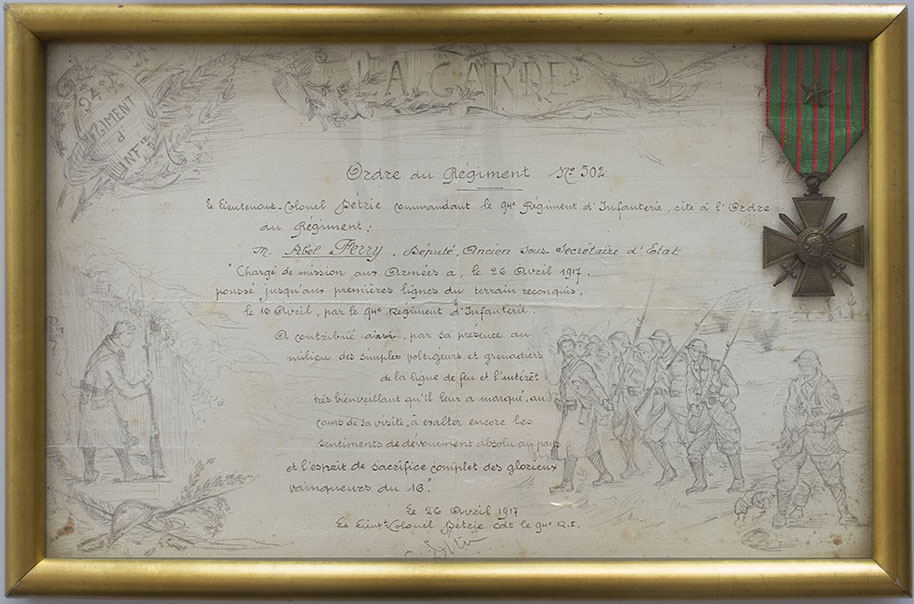 LA GARDE
94e
RÉGIMENT
d'
INFie
Ordre du Régiment No 502
Le Lieutenant-Colonel Pétrie commandant le 94e Régiment d'Infanterie, cite à l'Ordre
du Régiment:
M. Abel Ferry, Député, Ancien Sous Secrétaire d'Etat
"Chargé de mission aux Armées a, le 26 Avril 1917,
poussé jusqu'aux premières lignes du terrain reconquis,
le 16 Avril, par le 94e Régiment d'Infanterie.
A contribué ainsi, par sa présence au
milieu des simples voltigeurs et grenadiers
de la ligne de feu et l'intérêt
très bienveillant qu'il leur a marqué, au
cours de sa visite, à exalter encore les
sentiments de dévouement absolu au pays
et l'esprit de sacrifice complet des glorieux
vainqueurs du 16".
Le 26 Avril 1917
Le Lieut Colonel Pétrie Cdt le 94e R.I.